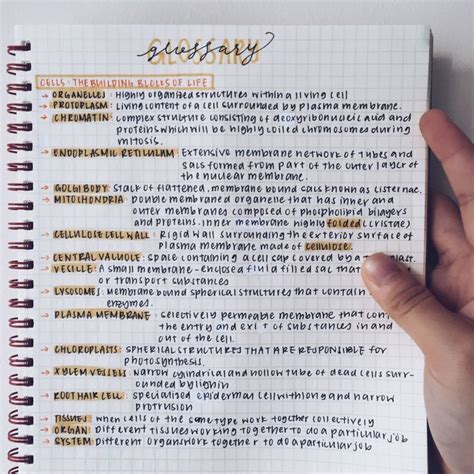 GLOSSARY
glossary
CELLS: THE BUILDING BLOCKS OF LIFE
→ ORGANELLES: Highly organised structures within a living cell
→ PROTOPLASM: Living content of a cell surrounded by plasma membrane.
→ CHROMATIN: complex structure consisting of deoxyribonucleic acid and
proteins which will be highly coiled chromosomes during
mitosis.
→ ENDOPLASMIC RETICULUM: Extensive membrane network of tubes and
sacs formed from part of the outer layer of
the nuclear membrane.
→ GOLGI BODY: Stack of flattened, membrane bound sacs known as cisternae.
→ MITOCHONDRIA: double membraned organelle that has inner and
outer membranes composed of phospholipid bilayers
and proteins. inner membrane highly folded (cristae)
→ CELLULOSE CELL WALL: Rigid wall surrounding the exterior surface of
plasma membrane made of cellulose.
→ CENTRAL VACUOLE: space containing a cell sap covered by a
→ VESICLE: A small membrane-enclosed fluid filled sac that
or transport substances
→ LYSOSOMES: Membrane bound spherical structures that contain
enzymes.
→ PLASMA MEMBRANE: selectively permeable membrane that
the entry and exit of substances in and
out of the cell.
→ CHLOROPLASTS: SPHERICAL STRUCTURES THAT ARE RESPONSIBLE FOR
PHOTOSYNTHESIS.
→ XYLEM VESSELS: Narrow cylindrical and hollow tube of dead cells surr-
ounded by lignin
→ ROOT HAIR CELL: specialised epidermal cell with long and narrow
protrusion
→ TISSUES: when cells of the same type work together collectively
→ ORGAN: Different tissues working together to do a particular job
→ SYSTEM: Different organs work together to do a particular job